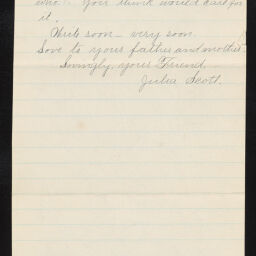 who you think would care for
it.
Write soon - very soon.
Love to your father and mother.
Lovingly, your Friend
Julia Scott.